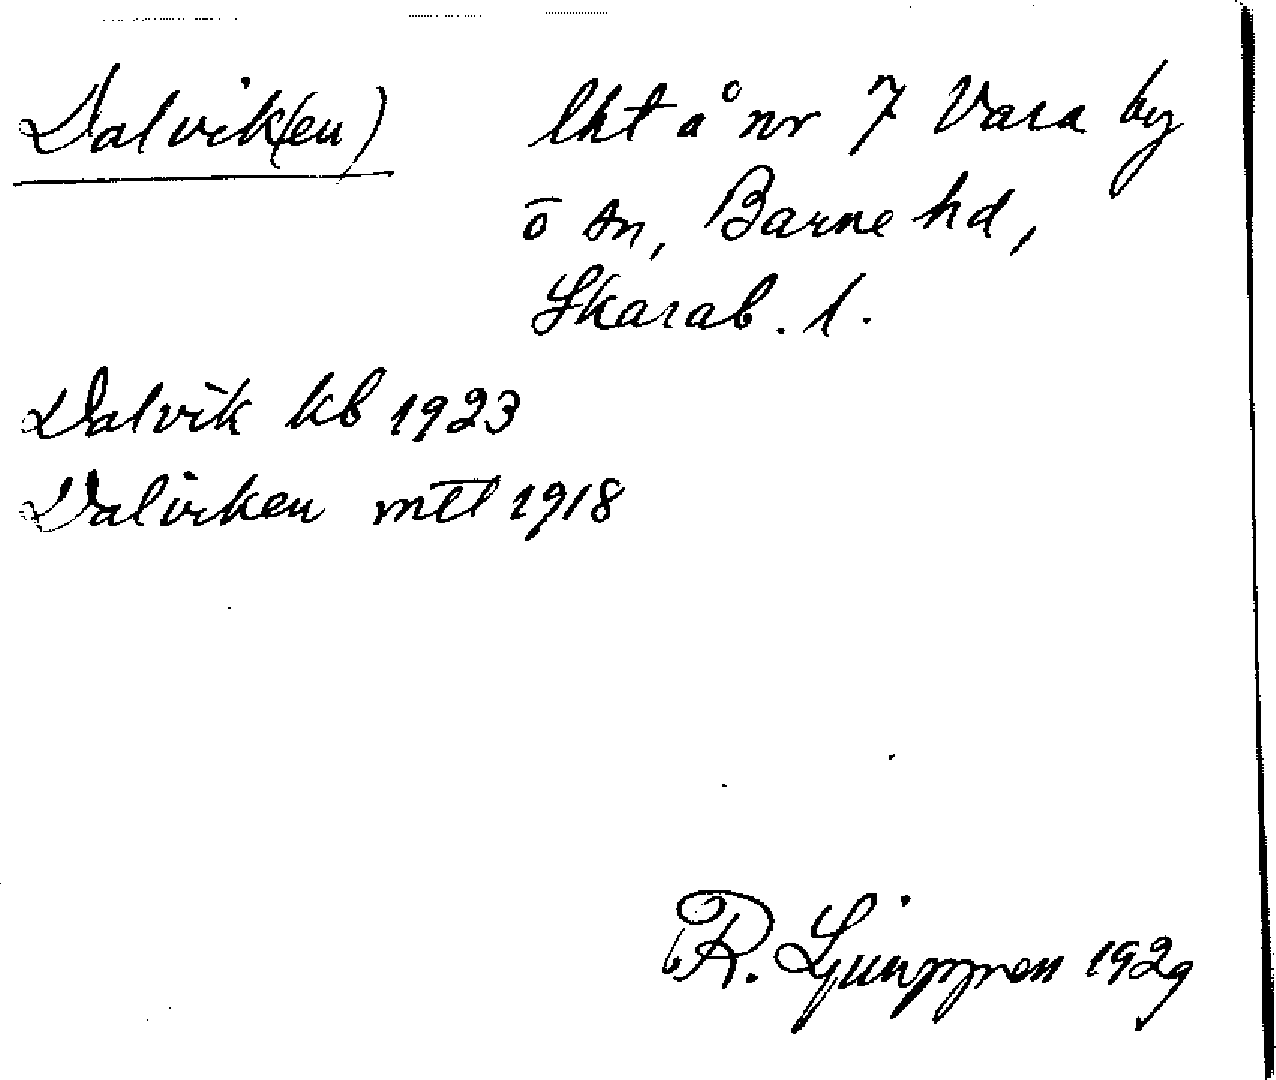 Dalvik(en) lht å nr 7 Vara by
o sn, Barne hd,
Skarab. l.
Dalvik kb 1923
Dalviken mtl 1918
R. Ljunggren 1929